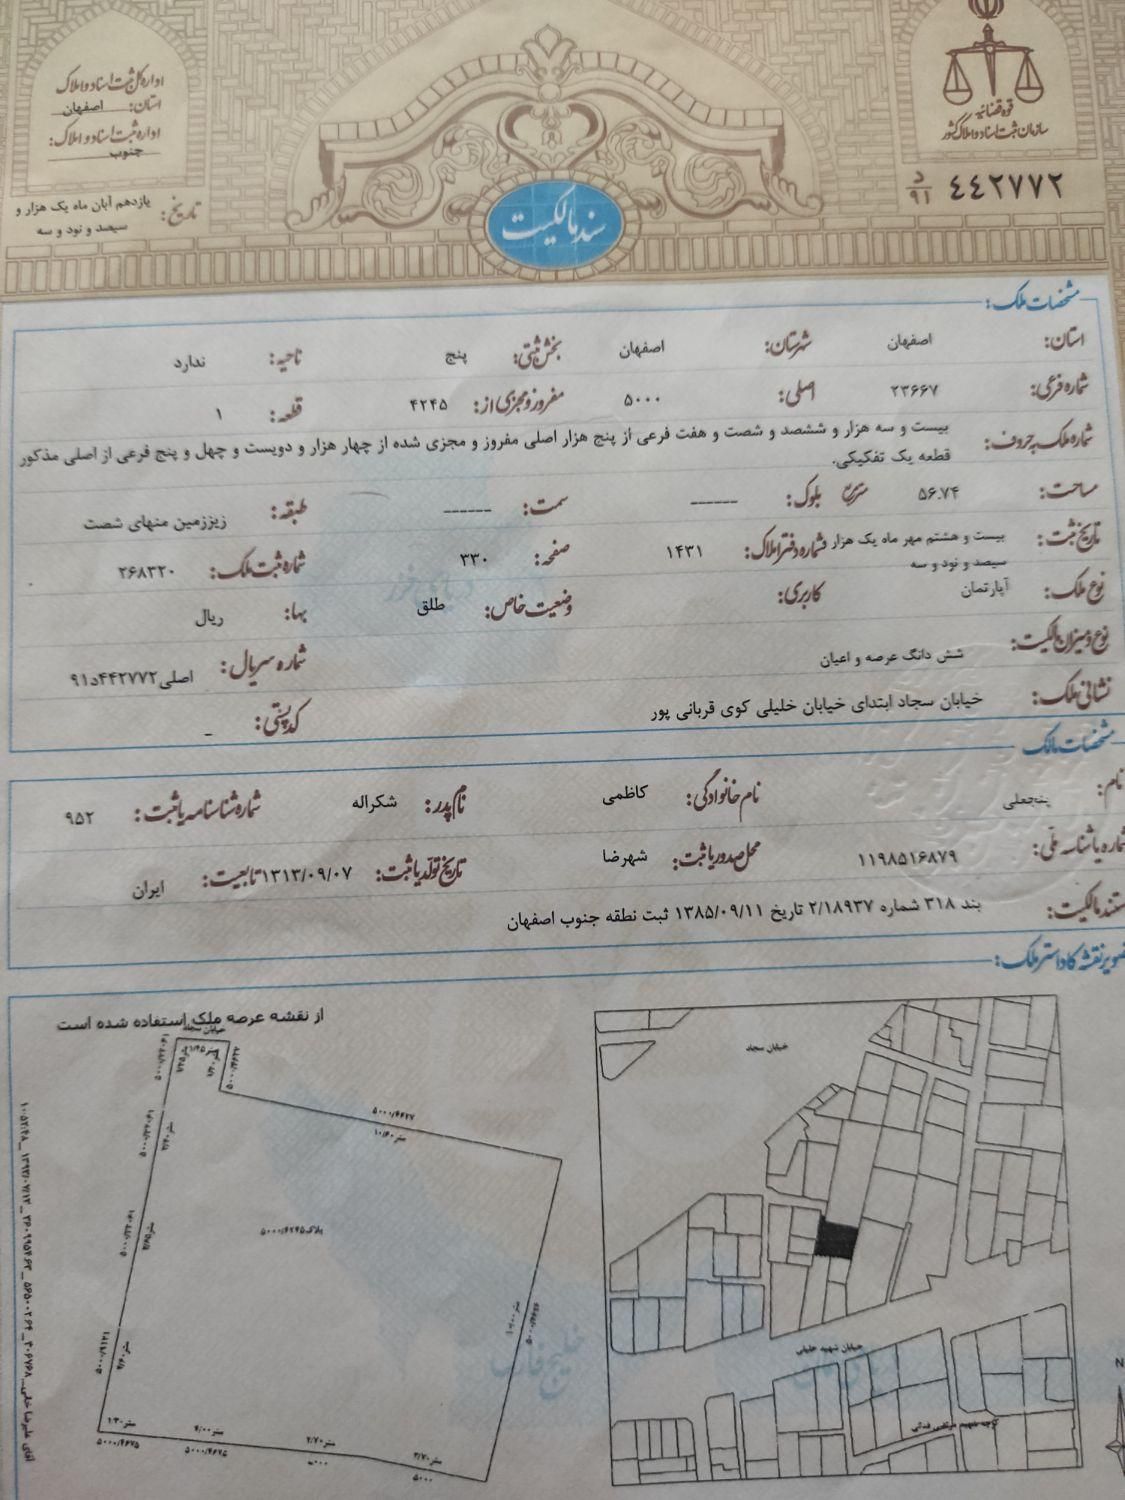 قوه قضائیه
سازمان ثبت اسناد و املاک کشور
۴۴۲۷۷۲ د/۹۱
اداره کل ثبت اسناد و املاک
استان: اصفهان
اداره ثبت اسناد و املاک:
جنوب
تاریخ: یازدهم آبان ماه یک هزار و
سیصد و نود و سه
سند مالکیت
مشخصات ملک:
استان: اصفهان شهرستان: اصفهان بخش ثبتی: پنج ناحیه: ندارد
شماره فرعی: ۲۳۶۶۷ اصلی: ۵۰۰۰ مفروز و مجزی از: ۴۲۴۵ قطعه: ۱
شماره ملک به حروف: بیست و سه هزار و ششصد و شصت و هفت فرعی از پنج هزار اصلی مفروز و مجزی شده از چهار هزار و دویست و چهل و پنج فرعی از اصلی مذکور
قطعه یک تفکیکی.
مساحت: ۵۶.۷۴ متر مربع بلوک: ------ سمت: ------ طبقه: زیرزمین منهای شصت
تاریخ ثبت: بیست و هشتم مهر ماه یک هزار سیصد و نود و سه شماره دفتر املاک: ۱۴۳۱ صفحه: ۳۳۰ شماره ثبت ملک: ۲۶۸۳۲۰
نوع ملک: آپارتمان کاربری: وضعیت خاص: طلق بها: ریال
نوع و میزان مالکیت: شش دانگ عرصه و اعیان شماره سریال: اصلی۴۴۲۷۷۲د۹۱
نشانی ملک: خیابان سجاد ابتدای خیابان خلیلی کوی قربانی پور کد پستی: _
مشخصات مالک
نام: پنجعلی نام خانوادگی: کاظمی نام پدر: شکراله شماره شناسنامه یا ثبت: ۹۵۲
شماره یا شناسه ملی: ۱۱۹۸۵۱۶۸۷۹ محل صدور یا ثبت: شهرضا تاریخ تولد یا ثبت: ۱۳۱۳/۰۹/۰۷ تابعیت: ایران
مستند مالکیت: بند ۳۱۸ شماره ۲/۱۸۹۳۷ تاریخ ۱۳۸۵/۰۹/۱۱ ثبت نطقه جنوب اصفهان
تصویر نقشه کاداستر ملک:
از نقشه عرصه ملک استفاده شده است
خیابان سجاد
۵۰۰۰/۴۶۲۷
۱۰/۶۰متر
پلاک۵۰۰۰/۴۲۴۵
۵۰۰۰/۴۶۷۵
۵۰۰۰/۴۶۷۵
۵۰۰۰
۴/۰۰متر
۲/۷۰متر
خیابان سجاد
خیابان شهید خلیلی
N